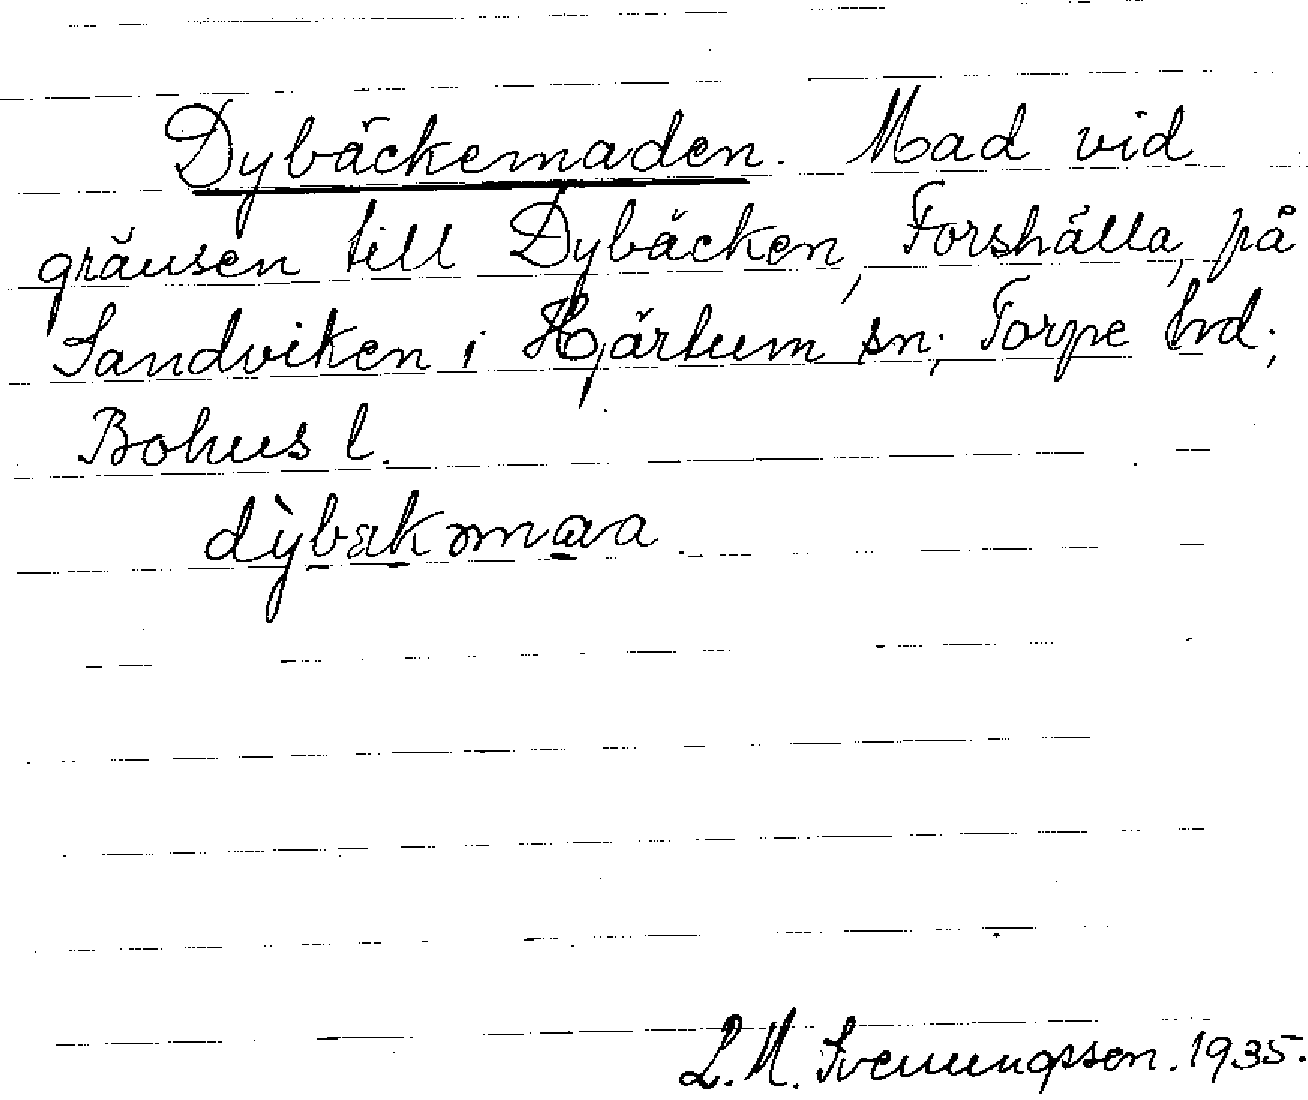 Dybäckemaden. Mad vid
gränsen till Dybäcken, Forshälla, på
Sandviken i Hjärtum sn; Torpe hrd;
Bohus l.
dỳbäkmaa
L. M. Svenungsson. 1935.